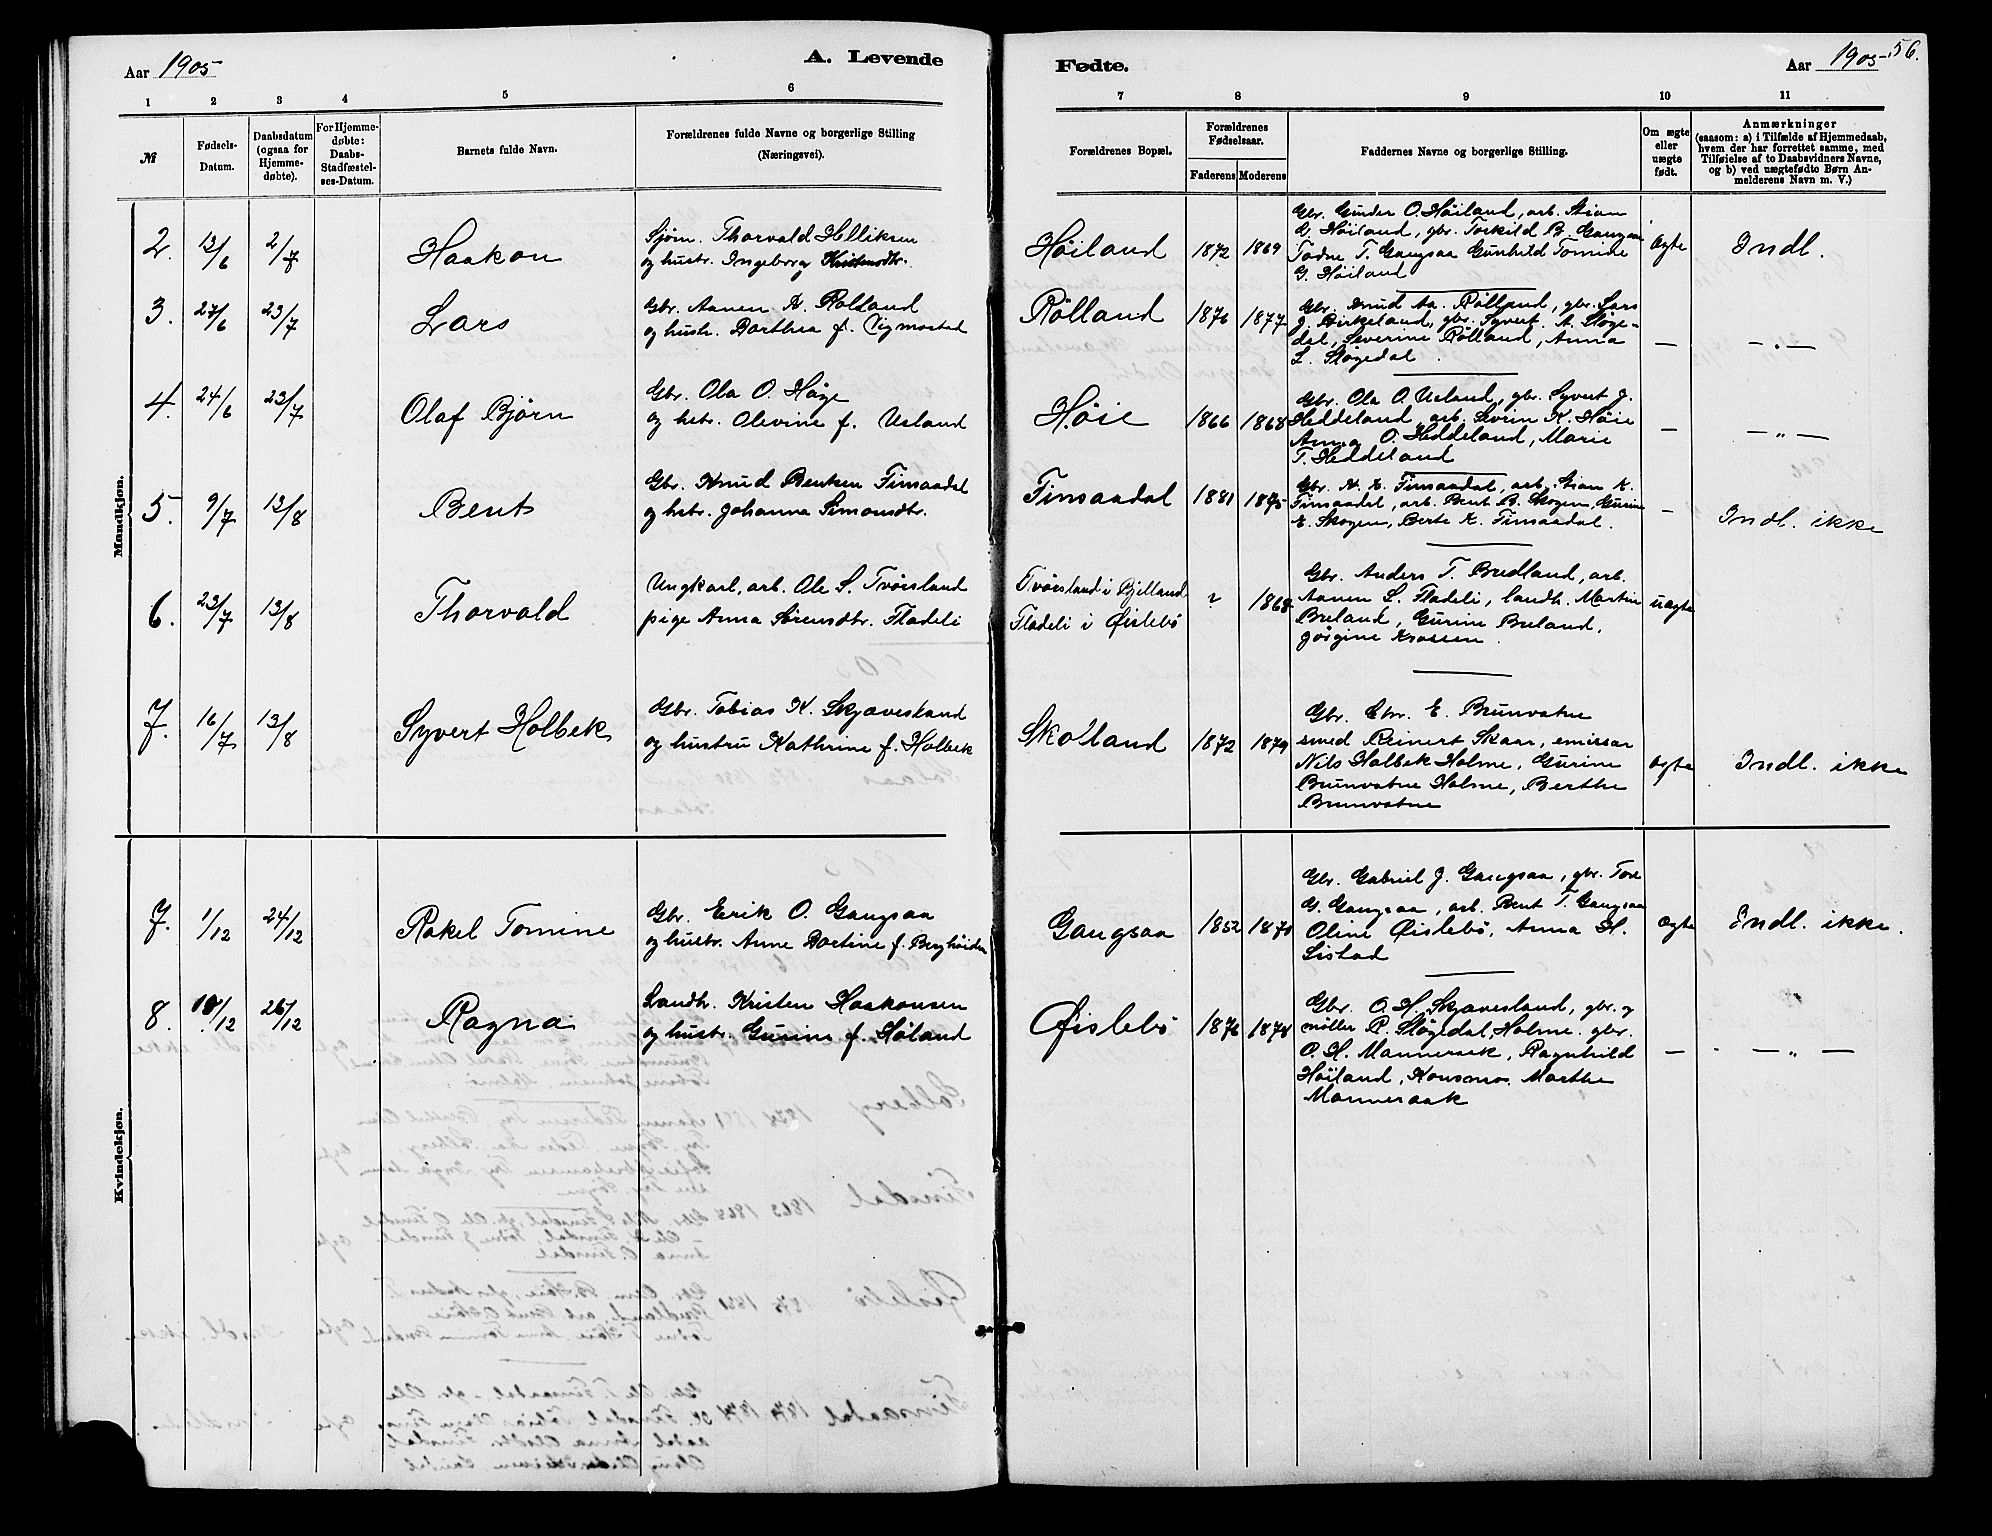 Aar 1905
A. Levende
Fødte.
Aar 1905
56.
1 2 3 4 5 6
7 8 9 10 11
№
Fødsels-
Datum.
Daabsdatum
(ogsaa for
Hjemme-
døbte).
For Hjemme-
døbte:
Daabs-
Stadfæstel-
ses-Datum.
Barnets fulde Navn.
Forældrenes fulde Navne og borgerlige Stilling
(Næringsvei).
Forældrenes Bopæl.
Forældrenes
Fødselsaar.
Faderens Moderens
Faddernes Navne og borgerlige Stilling.
Om ægte
eller
uægte
født.
Anmærkninger
(saasom: a) i Tilfælde af Hjemmedaab,
hvem der har forrettet samme, med
Tilføielse af to Daabsvidners Navne,
og b) ved uægtefødte Børn An-
melderens Navn m. V.)
Mandkjøn.
2. 13/6 2/7 Haakon
Sjøm. Thorvald Helliksen
og hustr. Ingeborg
Høiland 1872 1869
Gbr. Gunder O. Høiland, arb. Stian
G. Høiland, gbr. Torkild B. Gangsaa
Todne T. Gangsaa Gunhild Tomine
G. Høiland
ægte Indl.
3. 27/6 23/7 Lars
Gbr. Aanen K. Rølland
og hustr. Barthea f. Vigmostad
Rølland 1876 1877
Gbr. Knud Aa. Rølland, gbr. Lars
J. Birkeland, gbr. Syvert A. Støge-
dal, Severine Rølland, Anna
L. Støgedal.
— — „ —
4. 24/6 23/7 Olaf Bjørn
Gbr. Ola O. Høge
og hstr. Olevine f. Usland
Høie 1866 1868
Gbr. Ola O. Usland, gbr. Syvert J.
Heddeland, arb. Sevrin K. Høie
Anna O. Heddeland, Marie
T. Heddeland
— — „ —
5. 9/7 13/8 Bent
Gbr. Knud Bentsen Finsaadal
og hstr. Johanna Simonsdtr.
Finsaadal 1881 1875
Gbr. K. K. Finsaadal, arb. Stian K.
Finsaadal, arb. Bent B. Skogen, Gurine
E. Skogen, Berte K. Finsaadal.
— Indl. ikke
6. 23/7 13/8 Thorvald
Ungkarl, arb. Ole S. Tvørsland
pige Anna Sørensdtr. Fladeli
Tvørsland i Bjelland
Fladeli i Øislebø
? 1868
Gbr. Anders T. Bredland, arb.
Aanen S. Fladeli, landh. Martin
Breland, Gurine Breland,
Jørgine Krossen.
uægte
7. 16/7 13/8 Syvert Holbek
Gbr. Tobias K. Skjævesland
og hustru Kathrine f. Holbek
Skolland 1872 1879
Gbr. Chr. E. Brunvatne
smed Reinert Skaar, emissær
Nils Holbek Holme, Gurine
Brunvatne Holme, Berthe
Brunvatne
ægte Indl. ikke
Kvindekjøn.
7. 1/12 24/12 Rakel Tomine
Gbr. Erik O. Gangsaa
og hustr. Anne Bartine f. Berghøiden
Gangsaa 1852 1870
Gbr. Gabriel J. Gangsaa, gbr. Tore
G. Gangsaa, arb. Bent T. Gangsaa
Oline Øislebø, Anna H.
Listad
ægte Indl. ikke.
8. 10/12 26/12 Ragna
Landh. Kristen Haakonsen
og hustr. Gurine f. Høiland
Øislebø 1876 1878
Gbr. O. H. Skjævesland, gbr. og
møller P. Støgedal, Holme. gbr.
O. H. Manneraak, Ragnhild
Høiland, Konsmo. Marthe
Manneraak
— — „ —